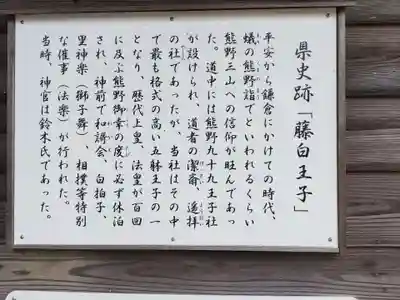 県史跡「藤白王子」
平安から鎌倉にかけての時代、
蟻の熊野詣でといわれるくらい
熊野三山への信仰が旺んであっ
た。道中には熊野九十九王子社
が設けられ、道者の潔斎、遥拝
の社であったが、当社はその中
で最も格式の高い五躰王子の一
となり、歴代上皇、法皇が百回
に及ぶ熊野御幸の度に必ず休泊
され、神前で和謌会、白拍子、
里神楽（獅子舞）、相撲等特別
な催事（法楽）が行われた。
当時、神官は鈴木氏であった。